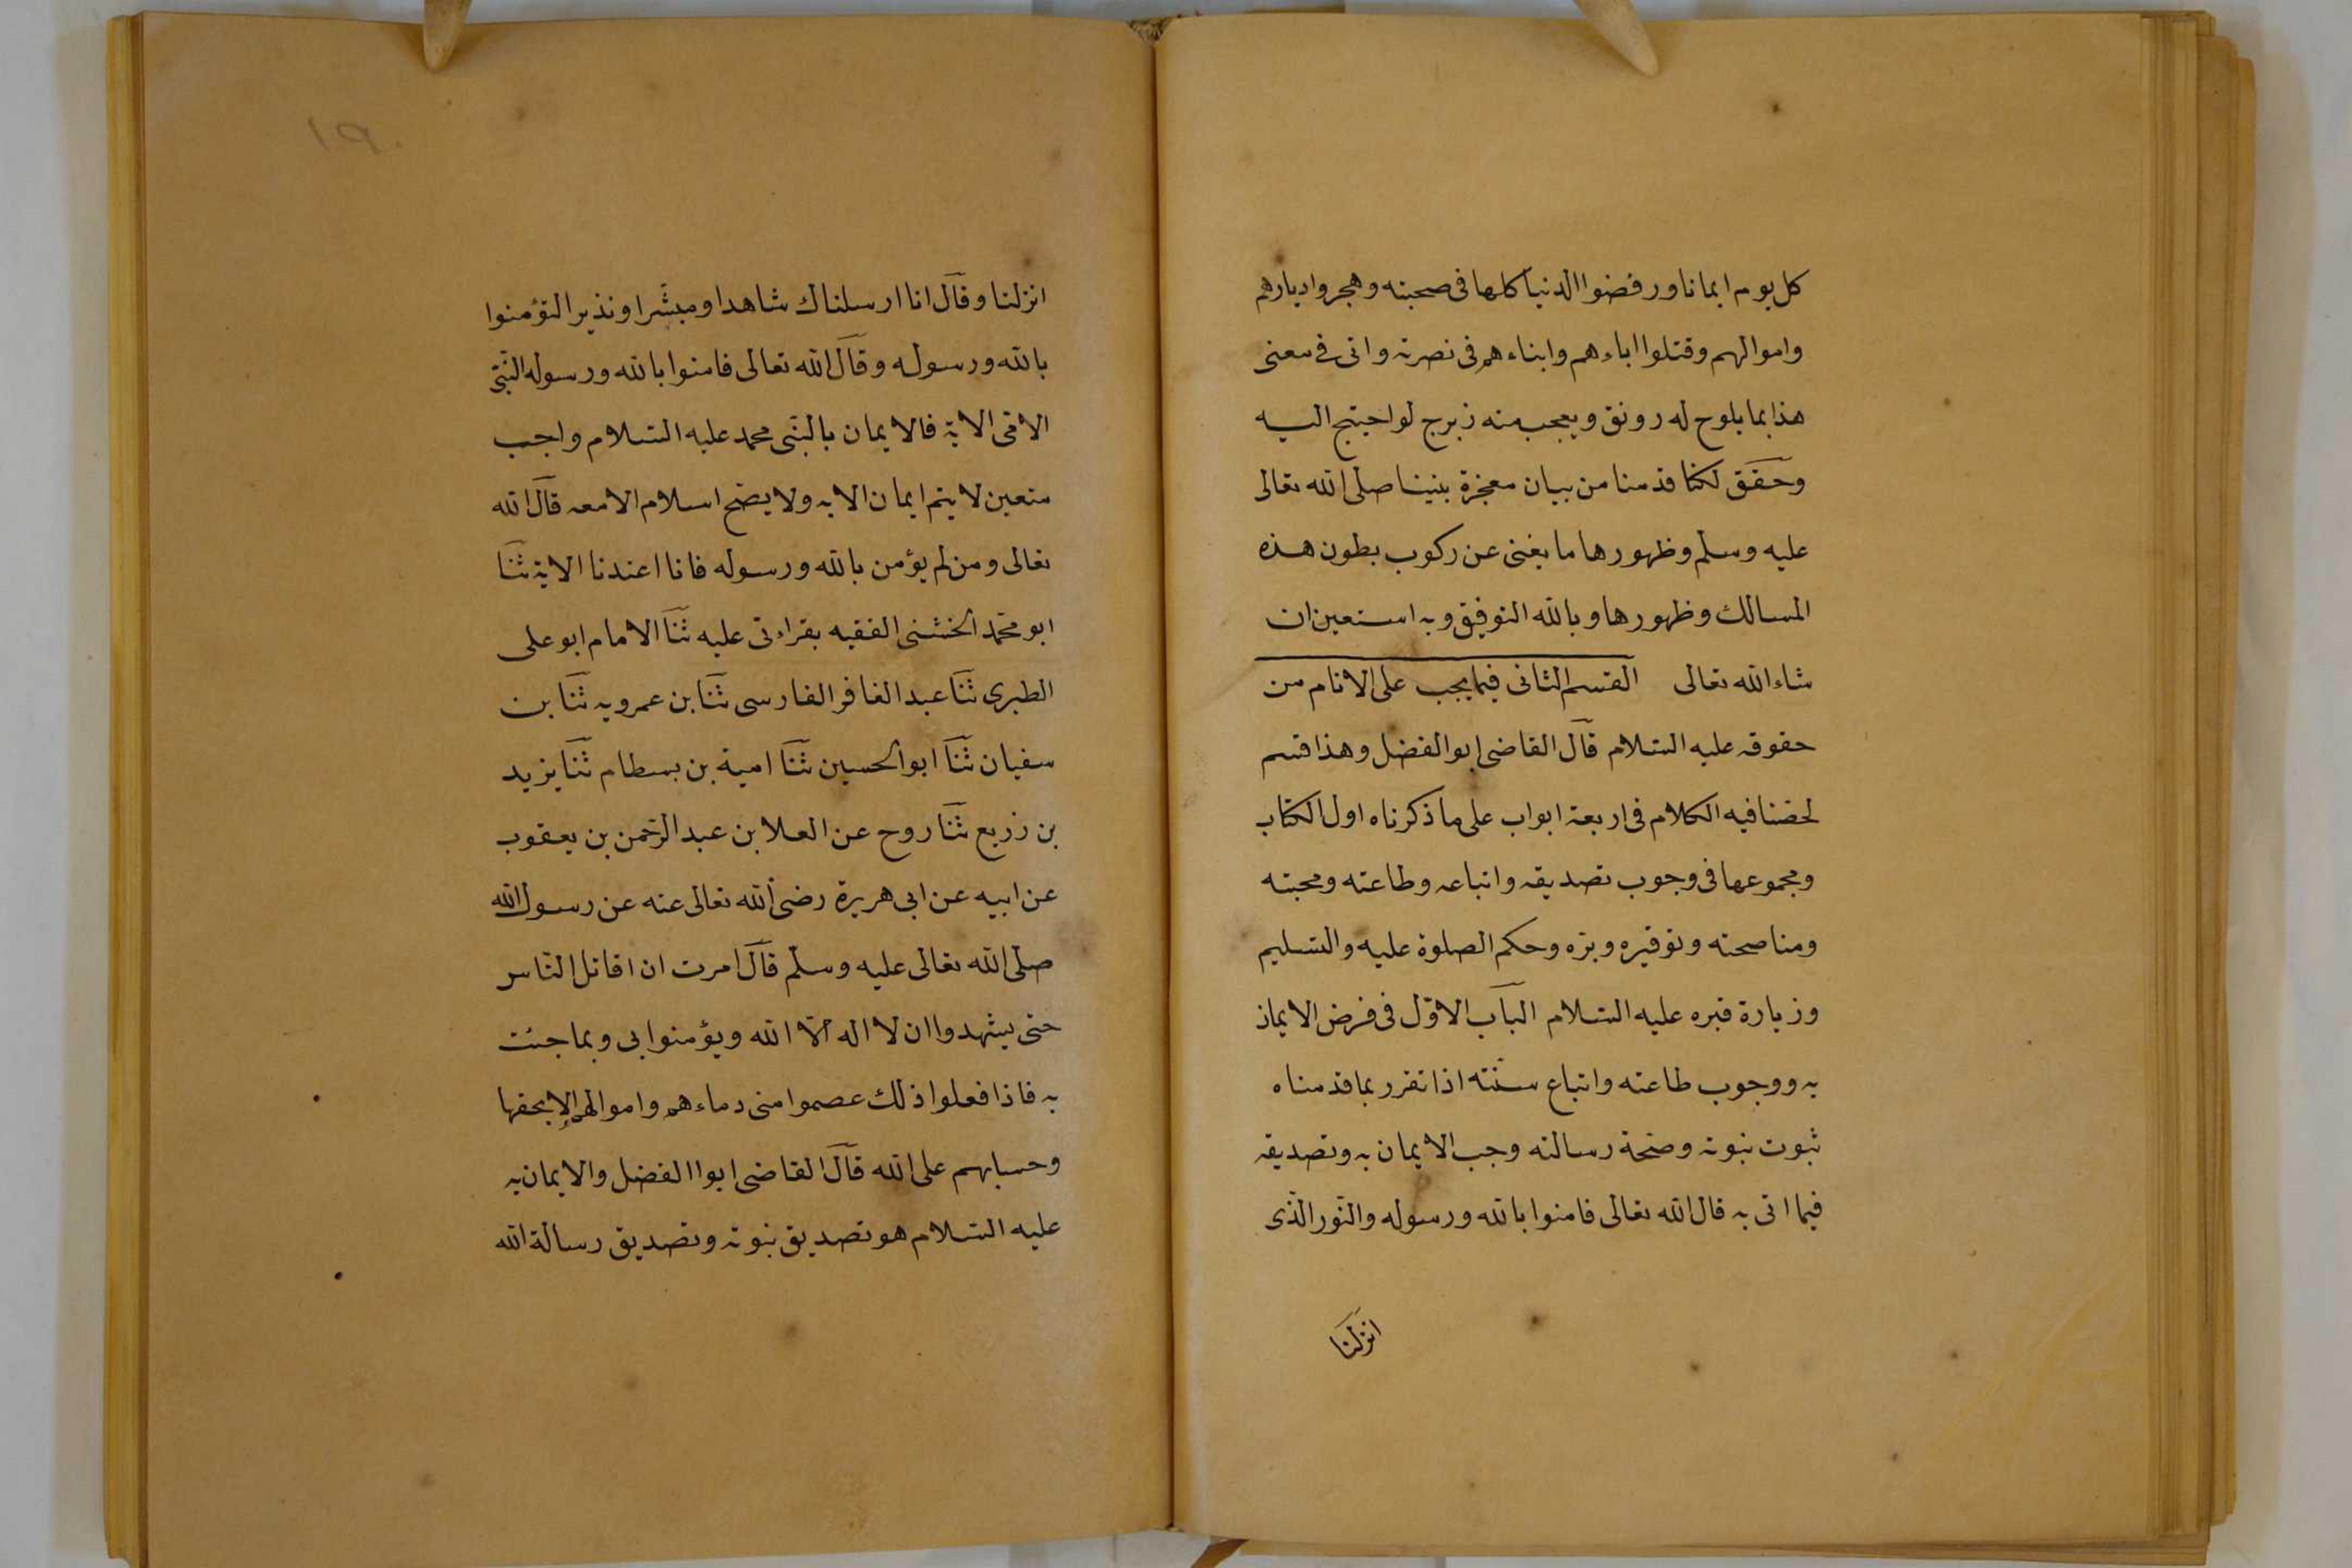 كل يوم ايمانا ورفضوا الدنيا كلها فى صحبته وهجروا ديارهم
واموالهم وقتلوا اباءهم وابناءهم فى نصرته واتى فى معنى
هذا بما يلوح له رونق ويعجب منه زبرج لو احتيج اليه
وحقق لكنا قدمنا من بيان معجزة نبينا صلى الله تعالى
عليه وسلم وظهورها ما يغنى عن ركوب بطون هذه
المسالك وظهورها وبالله التوفيق وبه استعين ان
شاء الله تعالى القسم الثانى فيما يجب على الانام من
حقوقه عليه السلام قال القاضى ابو الفضل وهذا قسم
لخصنا فيه الكلام فى اربعة ابواب على ما ذكرناه اول الكتاب
ومجموعها فى وجوب تصديقه واتباعه وطاعته ومحبته
ومناصحته وتوقيره وبرّه وحكم الصلوة عليه والتسليم
وزيارة قبره عليه السلام الباب الاوّل فى فرض الايمان
به ووجوب طاعته واتباع سنّته اذا تقرر بما قدمناه
ثبوت نبوته وصحة رسالته وجب الايمان به وتصديقه
فيما اتى به قال الله تعالى فامنوا بالله ورسوله والنّور الّذى
انزلنا
١٩٠
انزلنا وقال انا ارسلناك شاهدا ومبشّرا ونذيرا لتؤمنوا
بالله ورسوله وقال الله تعالى فامنوا بالله ورسوله النّبىّ
الامّى الاية فالايمان بالنّبى محمد عليه السّلام واجب
متعين لا يتم ايمان الا به ولا يصح اسلام الا معه قال الله
تعالى ومن لم يؤمن بالله ورسوله فانا اعتدنا الاية ثنا
ابو محمّد الخشنى الفقيه بقراءتى عليه ثنا الامام ابو على
الطبرى ثنا عبد الغافر الفارسى ثنا بن عمرويه ثنا بن
سفيان ثنا ابو الحسين ثنا امية بن بسطام ثنا يزيد
بن زريع ثنا روح عن العلا بن عبد الرّحمن بن يعقوب
عن ابيه عن ابى هريرة رضى الله تعالى عنه عن رسول الله
صلى الله تعالى عليه وسلم قال امرت ان اقاتل النّاس
حتى يشهدوا ان لا اله الّا الله ويؤمنوا بى وبما جئت
به فاذا فعلوا ذلك عصموا منى دماءهم واموالهم الا بحقها
وحسابهم على الله قال القاضى ابوا الفضل والايمان به
عليه السّلام هو تصديق نبوته وتصديق رسالة الله